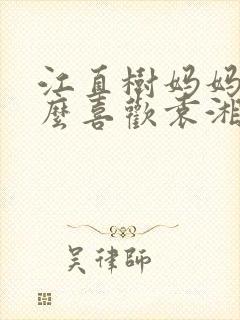 江直樹媽媽
麼喜歡袁湘
吴律師